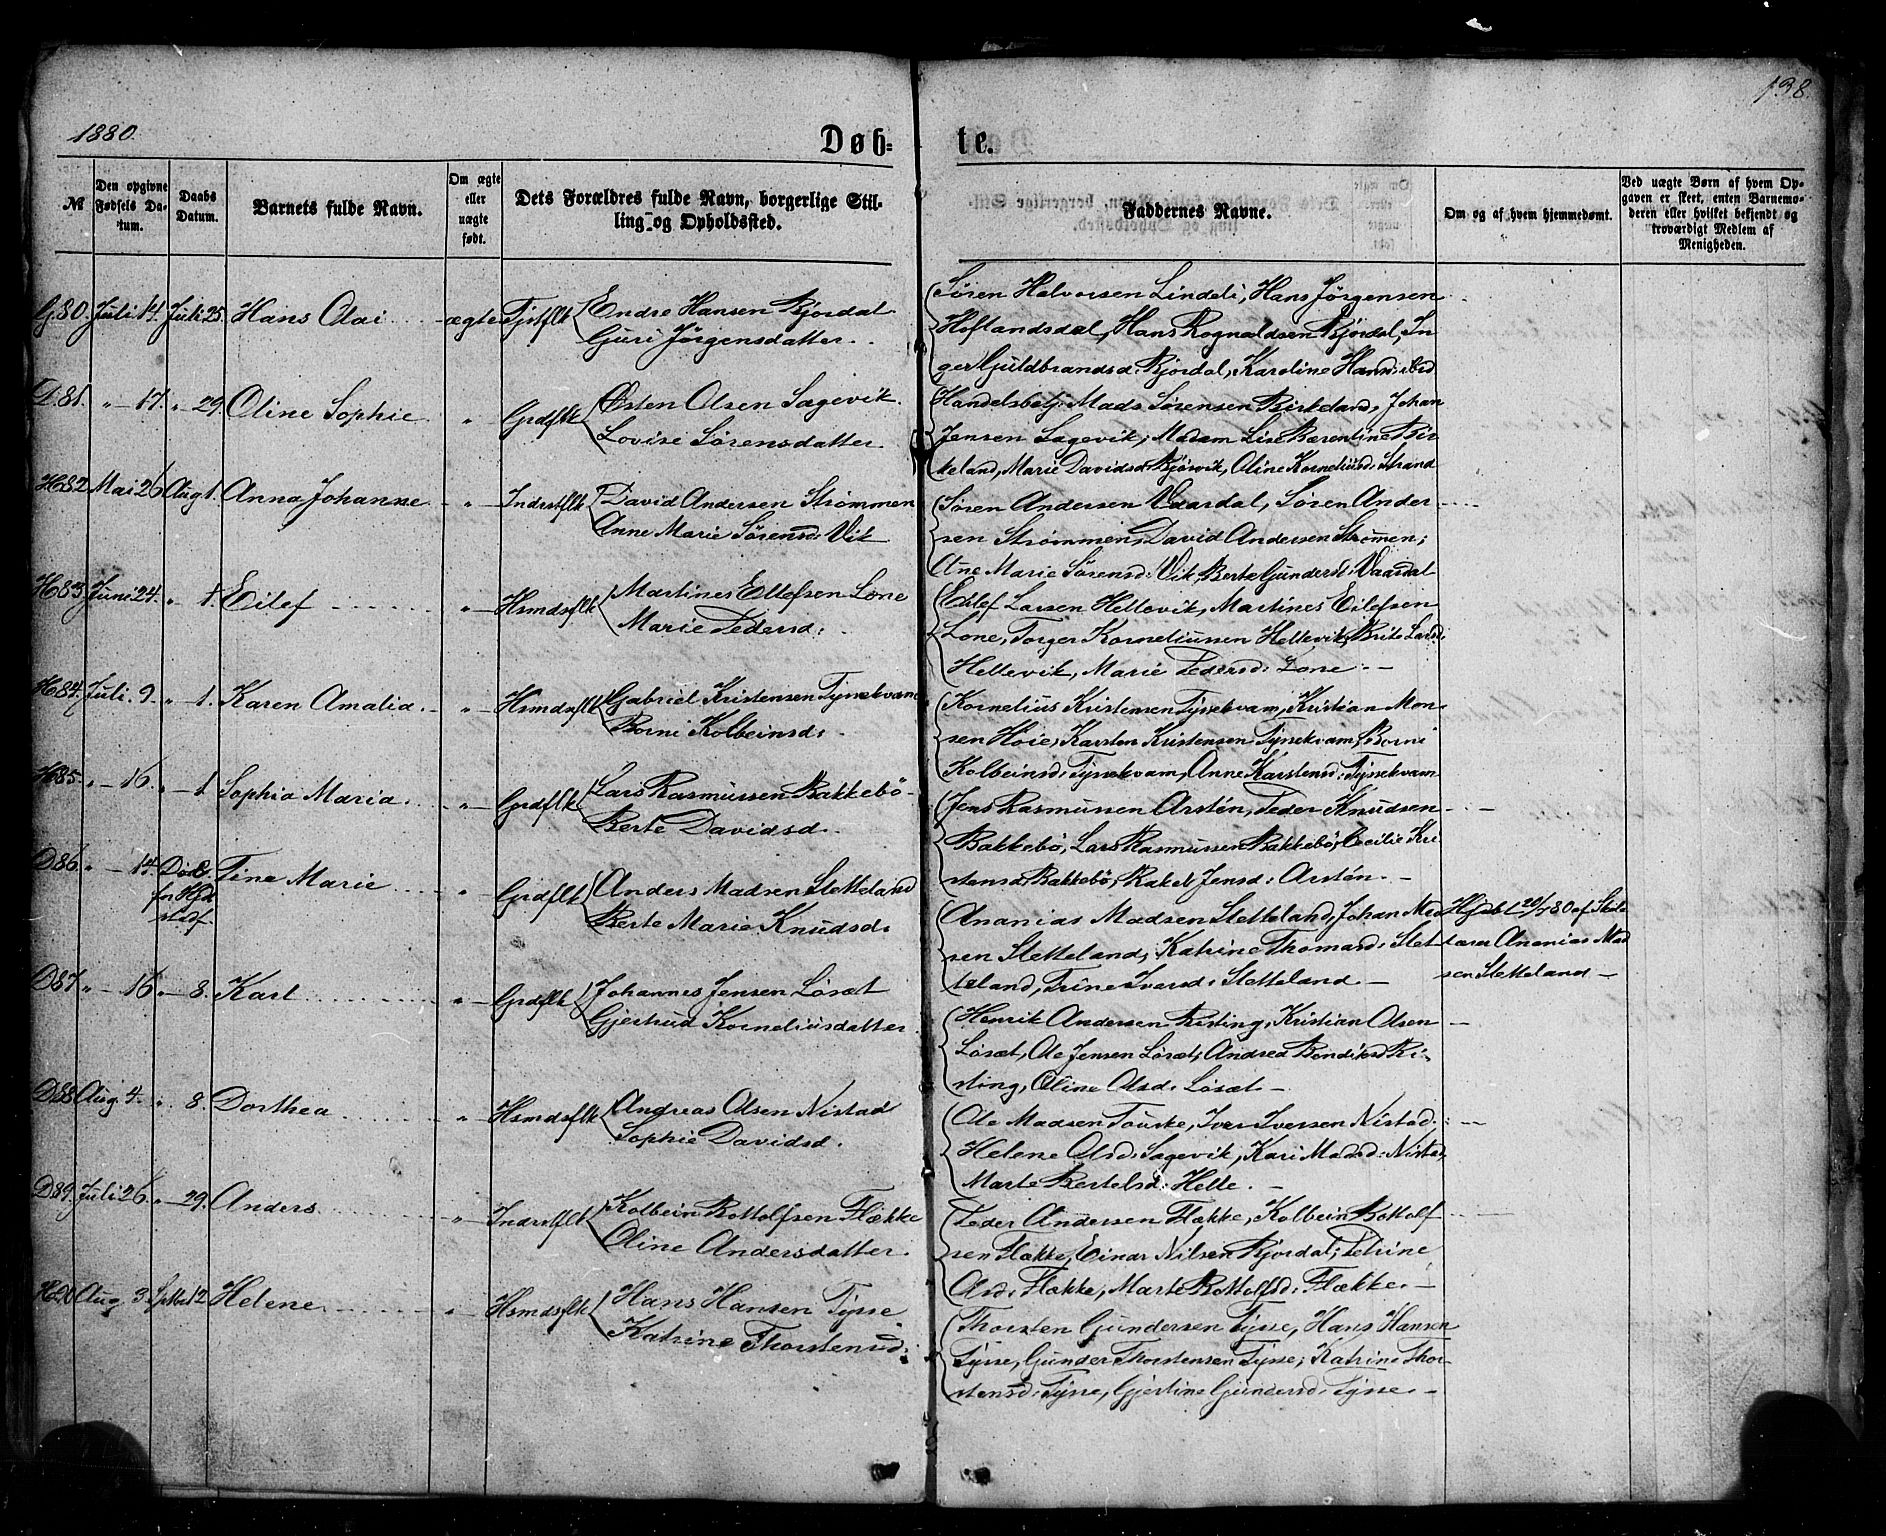 138.
1880.
Døb=
te.
№
Den opgivne Fødsels Datum.
Daabs Datum.
Barnets fulde Navn.
Om ægte eller uægte født.
Dets Forældres fulde Navn, borgerlige Stilling og Opholdssted.
Faddernes Navne.
Om og af hvem hjemmedømt.
Ved uægte Børn af hvem Opgaven er skeet, enten Barnemoderen eller hvilket bekjendt og troværdigt Medlem af Menigheden.
G.80. Juli 14. Juli 25. Hans Olai ægte Gjrstflk Endre Hansen Bjordal
Guri Jørgensdatter.
Søren Halvorsen Lindeli, Hans Jørgensen
Hoflandsdal, Hans Rognaldsen Bjordal, In
ger Guldbrandsd: Bjordal, Karoline Hansd: ibd
D.81. " — 17. " 29. Oline Sophie " Grdflk Østen Olsen Sagevik.
Lovise Sørensdatter
Handelsbetj: Mads Sørensen Birkeland, Johan
Jensen Sagevik, Madam Lise Berentine Bir
keland, Marie Davidsd: Bjørvik, Oline Korneliusd: Strand
H82 Mai 26 Aug 1. Anna Johanne " Indrstflk David Andersen Strømmen
Anne Marie Sørensd: Vik
Søren Andersen Vaardal, Søren Ander
sen Strømmen, David Andersen Strømen;
Ane Marie Sørensd: Vik, Berte Gundersd: Vaardal
H83 Juni 24. " 1. Eilef " Hsmdsflk Martines Ellefsen Lone
Marie Pedersd:
Eilef Larsen Hellevik, Martines Eilefsen
Lone, Torger Korneliussen Hellevik, Brite Larsd:
Hellevik, Marie Pedersd: Lone. —
H84. Juli. 9. " — 1. Karen Amalia. " Hsmdsflk Gabriel Kristensen Tysekvam
Borni Kolbeinsd:
Kornelius Kristensen Tysekvam, Kristian Mon
sen Høie, Karsten Kristensen Tysekvam, Borni
Kolbeinsd: Tysekvam, Anne Karstensd: Tysekvam
H85. " — 16. " — 1 Sophia Maria. " Grdflk Lars Rasmussen Bakkebø
Berte Davidsd.
Jens Rasmussen Arstén, Peder Knudsen
Bakkebø, Lars Rasmussen Bakkebø, Cecilie Kri
stensd: Bakkebø, Rakel Jensd: Arstén. —
D86 " — 14. Død
før
Tine Marie " Grdflk Anders Madsen Sletteland
Berte Marie Knudsd:
Ananias Madsen Sletteland, Johan Mad
sen Sletteland, Katrine Thomasd: Slet
teland, Trine Iversd: Sletteland —
Hjdbt 20/7 80 af Sko
lærer Ananias Mad
sen Sletteland —
D87 " — 16 " — 8. Karl " Grdflk Johannes Jensen Løsæt
Gjertrud Korneliusdatter.
Henrik Andersen Risting, Kristian Olsen
Løsæt, Ole Jensen Løsæt, Andrea Bendiksd Ri
sting, Oline Olsd: Løsæt —
D88 Aug 4. " 8. Dorthea " Hsmdsflk Andreas Olsen Nistad
Sophie Davidsd.
Ole Madsen Touske, Iver Iversen Nistad.
Helene Olsd: Sagevik, Kari Madsd: Nistad,
Marte Bertelsd: Helle. —
D89. Juli 26 " — 29. Anders " Indrstflk Kolbein Rottolfsen Flække
Oline Andersdatter.
Peder Andersen Flække, Kolbein Rottolf
sen Flække, Einar Nilsen Bjordal, Petrine
Olsd: Flække, Marte Rottolfsd: Flække. —
H90 Aug 3. Septbr 12 Helene " Hsmdsflk Hans Hansen Tysse
Katrine Thorstensd:
Thorsten Gundersen Tysse, Hans Hansen
Tysse, Gunder Thorstensen Tysse, Katrine Thor
stensd: Tysse, Gjertine Gundersd: Tysse. —